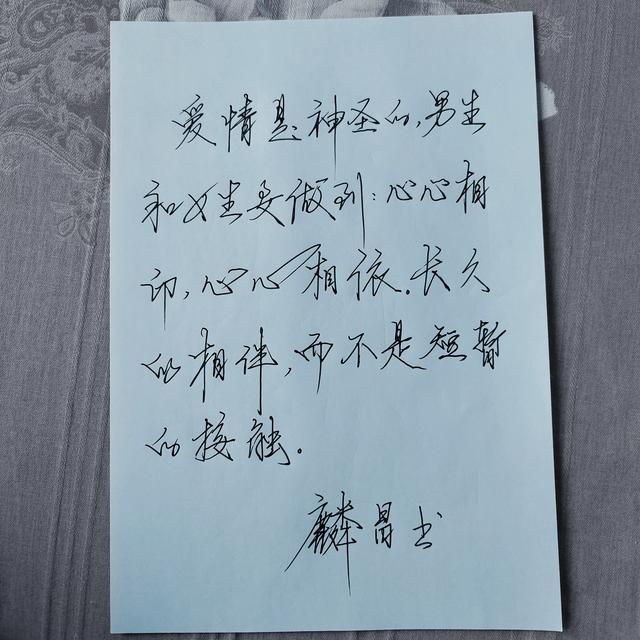 爱情是神圣的,男生
和女生要做到:心心相
印,心心相依.长久
的相伴,而不是短暂
的接触.
麟昌书